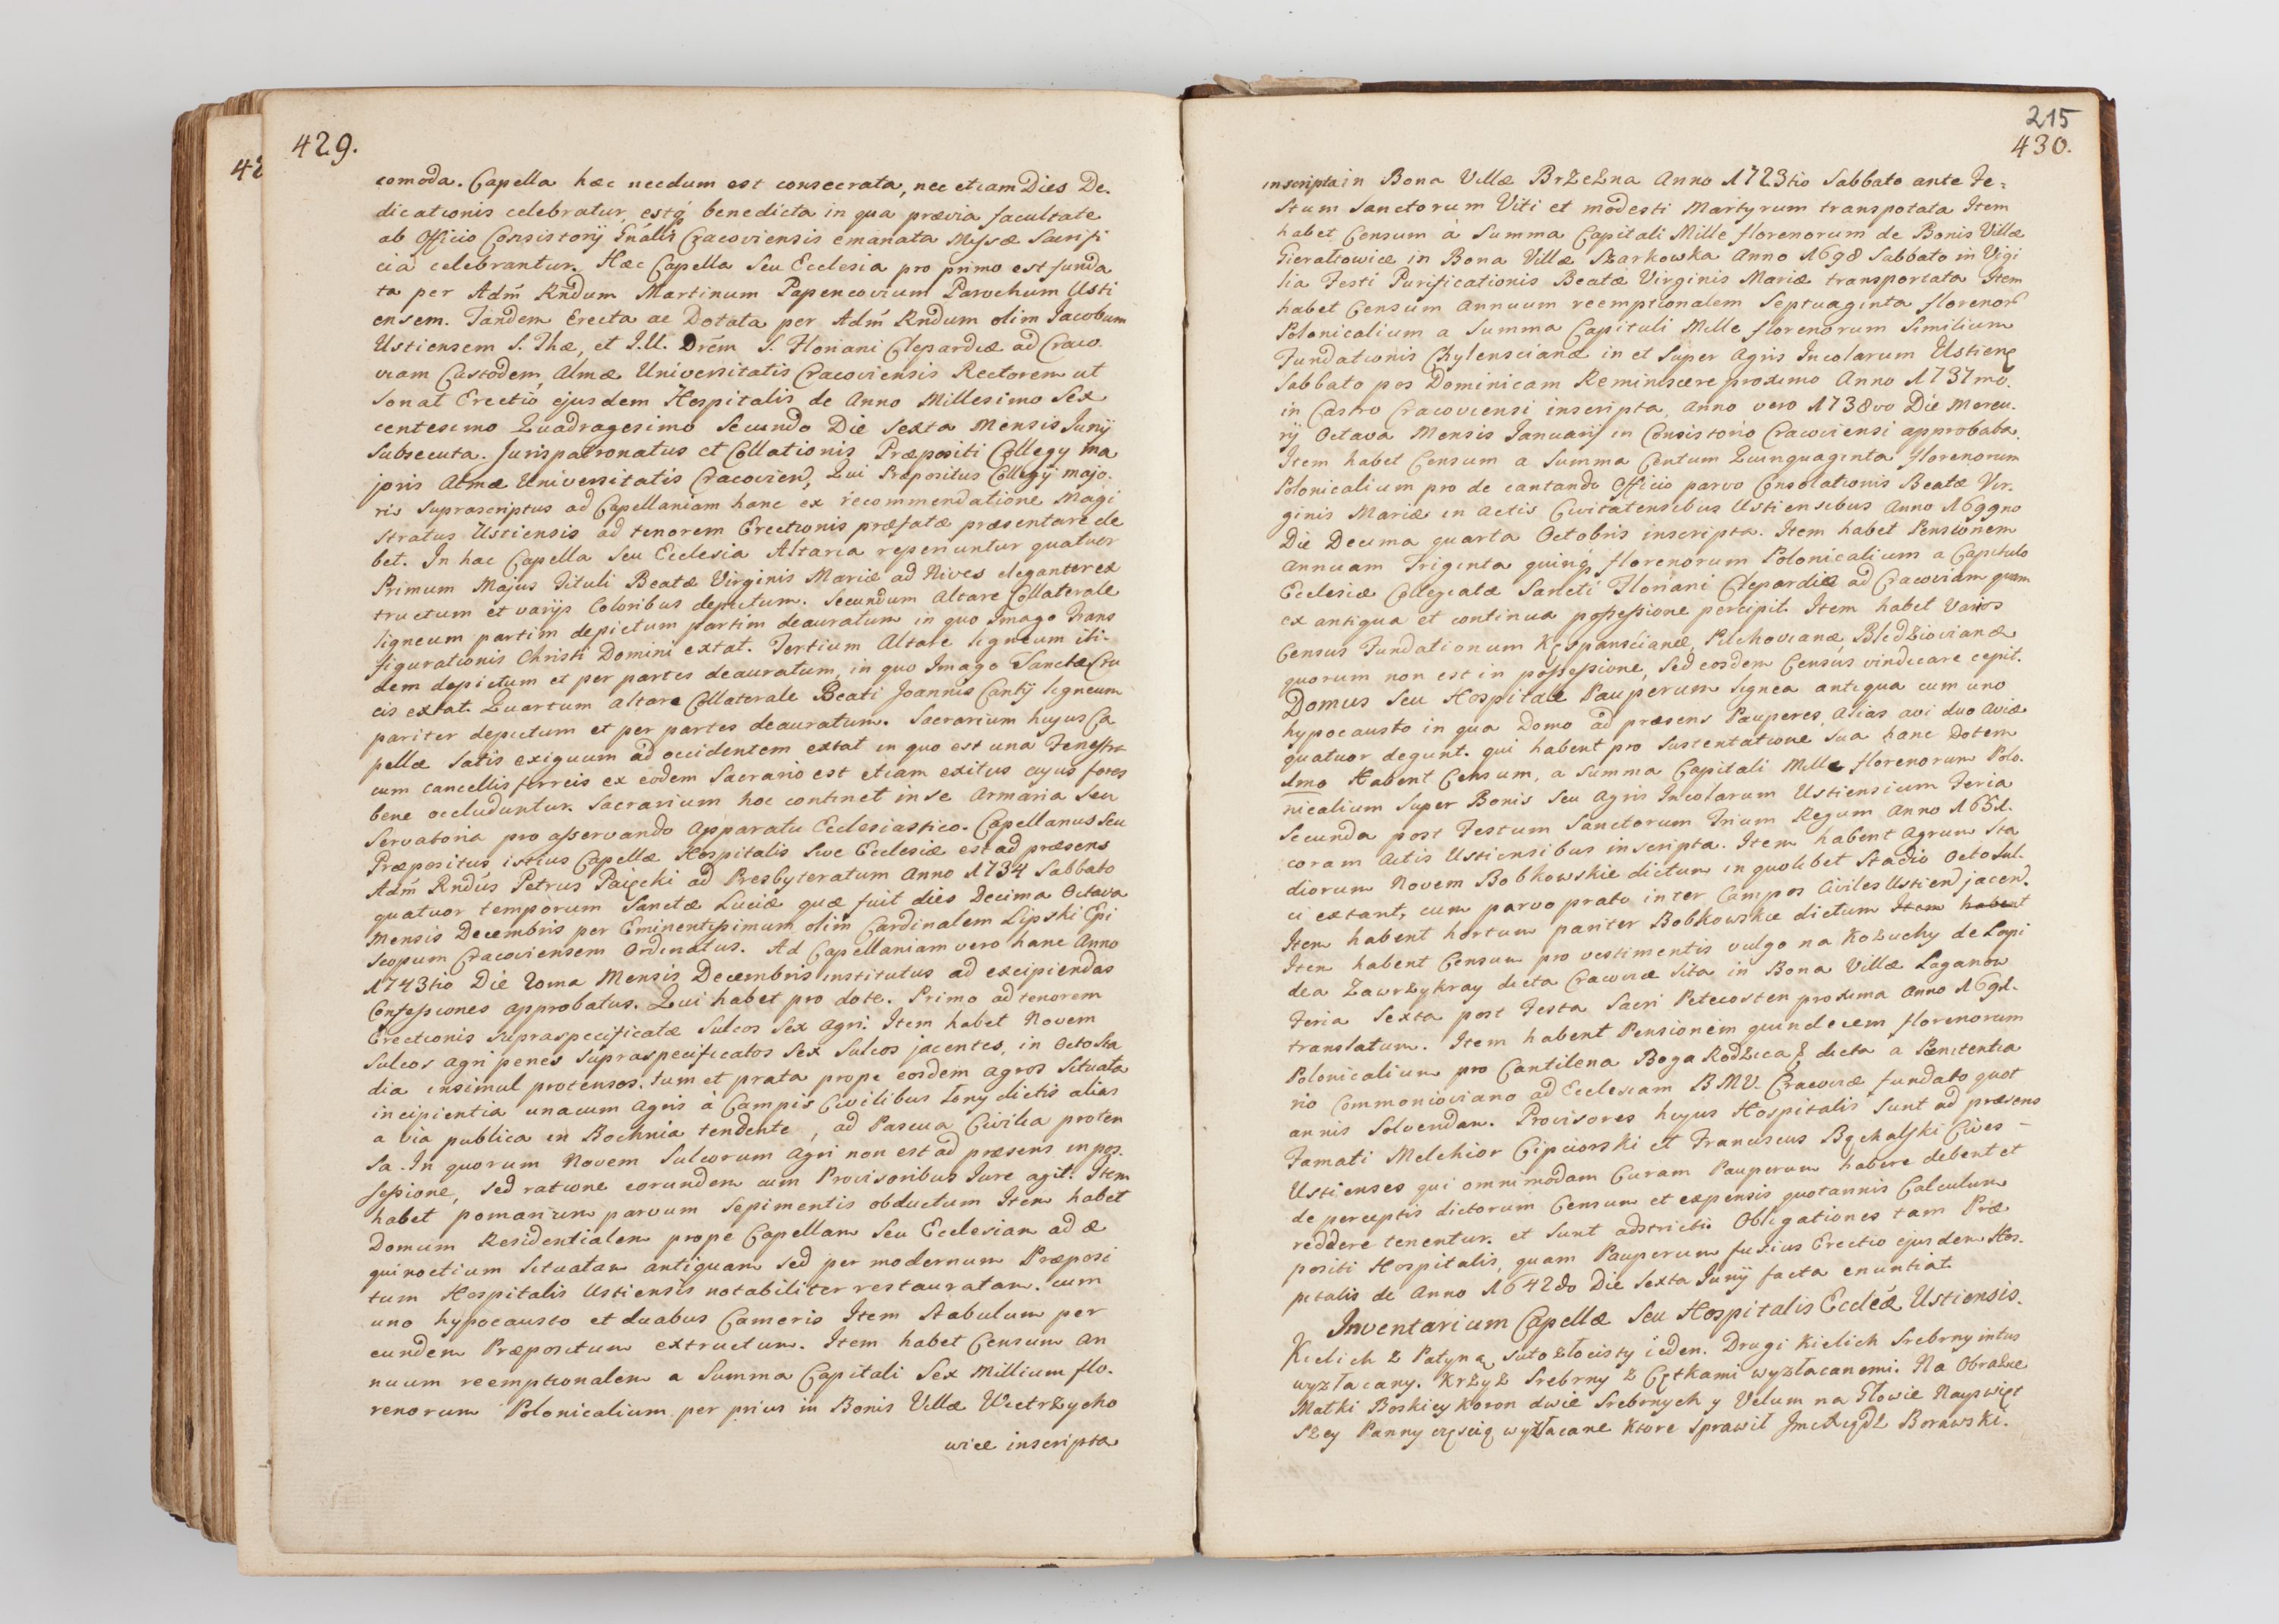 429.
comoda. Capella hæc necdum est consecrata, nec etiam Dies De.
dicationis celebratur, estq́ benedicta in qua prævia facultate
ab Officio Consistorij Gn̄alis Cracoviensis emanata Missæ Sacrifi
cia celebrantur. Hæc Capella Seu Ecclesia pro primo est funda
ta per Adm̄ Rn̄dum Martinum Papencovium Parochum Usti
ensem. Tandem Erecta ac Dotata per Adm̄ Rn̄dum olim Jacobum
Ustiensem S. Thæ, et I.U. Drēm S. Floriani Clepardiæ ad Craco
viam Custodem, Almæ Universitatis Cracoviensis Rectorem ut
Sonat Erectio ejusdem Hospitalis de Anno Millesimo Sex
centesimo Quadragesimo Secundo Die Sexta Mensis Junij
Subsecuta. Jurispatronatus et Collationis Præpositi Collegy ma
joris Almæ Universitatis Cracovien, Qui Præpositus Collegij majo.
ris Suprascriptus ad Capellaniam hanc ex recommendatione Magi
stratus Ustiensis ad tenorem Erectionis præfatæ præsentare de
bet. In hac Capella Seu Ecclesia Altaria reperiuntur quatuor
Primum Majus Tituli Beatæ Virginis Mariæ ad Nives eleganter ex
tructum et varijs Coloribus depictum. Secundum Altare Collaterale
ligneum partim depictum partim deauratum in quo Imago Trans
figurationis Christi Domini extat. Tertium Altare ligneum iti-
dem depictum et per partes deauratum, in quo Imago Sanctæ Cru
cis extat. Quartum altare Collaterale Beati Joannis Cantij ligneum
pariter depictum et per partes deauratum. Sacrarium hujus Ca
pellæ Satis exiguum ad occidentem extat in quo est una Fenestra
cum cancellis ferreis ex eodem Sacrario est etiam exitus cujus fores
bene occluduntur. Sacrarium hoc continet in se Armaria Seu
Servatoria pro asservando Apparatu Ecclesiastico. Capellanus Seu
Præpositus istius Capellæ Hospitalis Sive Ecclesiæ est ad præsens
Adm̄ Rn̄dus Petrus Paięcki ad Presbyteratum Anno 1734 Sabbato
quatuor temporum Sanctæ Luciæ quæ fuit dies Decima Octava
Mensis Decembris per Eminentissimum olim Cardinalem Lipski Epi
scopum Cracoviensem Ordinatus. Ad Capellaniam vero hanc Anno
1743tio Die 20ma Mensis Decembris institutus ad excipiendas
Confessiones approbatus. Qui habet pro dote. Primo ad tenorem
Erectionis supraspecificatæ Sulcos Sex Agri. Item habet Novem
Sulcos Agri penes Supraspecificatos Sex Sulcos jacentes, in Octo Sta
dia insimul protensos. tum et prata prope eosdem agros Situata
incipientia unacum Agris à Campis Civilibus Łany dictis alias
a via publica in Bochnia tendente, ad Pascua Civilia proten
Sa. In quorum Novem Sulcorum Agri non est ad præsens in pos.
sessione, Sed ratione eorundem cum Provisoribus Jure agit. Item
habet pomarium parvum Sepimentis obductum Item habet
Domum Residentialem prope Capellam Seu Ecclesiam ad æ
quinoctium Situatam antiquam Sed per modernum Præposi
tum Hospitalis Ustiensis notabiliter restauratam. cum
uno hypocausto et duabus Cameris Item Stabulum per
eundem Præpositum extructum. Item habet Censum An
nuum reemptionalem a Summa Capitali Sex Millium flo.
renorum Polonicalium per prius in Bonis Villæ Wietrzycho
wice inscripta
215
430.
inscripta in Bona Villæ Brzezna Anno 1723tio Sabbato ante Fe-
stum Sanctorum Viti et modesti Martyrum transpotata Item
habet Censum à Summa Capitali Mille florenorum de Bonis Villæ
Gierałtowice in Bona Villæ Szarkowka Anno 1698 Sabbato in Vigi
lia Festi Purificationis Beatæ Virginis Mariæ transportata Item
habet Censum Annuum reemptionalem Septuaginta florenor
Polonicalium a Summa Capituli Mille florenorum Similium
Fundationis Chylenscianæ in et Super Agris Incolarum Ustien
Sabbato pos Dominicam Reminiscere proximo Anno 1737mo.
in Castro Cracoviensi inscripta, Anno vero 1738vo Die Mercu.
rij Octava Mensis Januarij in Consistorio Cracoviensi approbata.
Item habet Censum a Summa Centum Quinquaginta florenorum
Polonicalium pro de cantando Officio parvo Consolationis Beatæ Vir.
ginis Mariæ in Actis Civitatensibus Ustiensibus Anno 1699no
Die Decima quarta Octobris inscripta. Item habet Pensionem
Annuam Triginta quinq́ florenorum Polonicalium a Capitulo
Ecclesiæ Collegiatæ Sancti Floriani Clepardiæ ad Cracoviam quam
ex antiqua et continua possessione percipit. Item habet Varios
Census Fundationum Kęspanscianæ, Pilchovianæ Bledziovianæ
quorum non est in possessione, Sed eosdem Census vindicare cepit.
Domus Seu Hospitale Pauperum lignea antiqua cum uno
hypocausto in qua Domo ad præsens Pauperes, Alias avi duo Aviæ
quatuor degunt. qui habent pro Sustentatione Sua hanc Dotem
1mo Habent Censum, a Summa Capitali Mille florenorum Polo.
nicalium Super Bonis Seu Agris Incolarum Ustiensium Feria
Secunda post Festum Sanctorum Trium Regum Anno 1651.
coram Actis Ustiensibus inscripta. Item habent Agrum Sta
diorum Novem Bobkowskie dictum in quolibet Stadio Octo Sul.
ci extant, cum parvo prato inter Campos Civiles Ustien jacen.
Item habent hortum pariter Bobkowskie dictum Item habent
Item habent Censum pro vestimentis vulgo na Kożuchy de Lapi
dea Zawrzykray dicta Cracoviæ Sita in Bona Villæ Łaganow
Feria Sexta post Festa Sacri Petecosten proxima Anno 1691.
translatum. Item habent Pensionem quindecem florenorum
Polonicalium pro Cantilena Boga Rodzica & dicta a Pœnitentia
rio Commonioviano ad Ecclesiam B.M.V. Cracoviæ fundato quot
annis Solvendam. Provisores hujus Hospitalis Sunt ad præsens
Famati Melchior Cipciorski et Franciscus Bąchalski Cives -
Ustienses qui omnimodam Curam Pauperum habere debent et
de perceptis dictorum Censum et expensis quotannis Calculum
reddere tenentur. et Sunt adstricti. Obligationes tam Præ
positi Hospitalis, quam Pauperum fusius Erectio ejusdem Hos.
pitalis de Anno 1642do Die Sexta Junij facta enuntiat.
Inventarium Capellæ Seu Hospitalis Eccleæ Ustiensis.
Kielich z Patyną suto złocisty ieden. Drugi Kielich Srebrny intus
wyzłacany. Krzyz Srebrny z Cętkami wyzłacanemi. Na Obrazie
Matki Boskiey Koron dwie Srebrnych y Velum na Głowie Nayswięt
szey Panny częscią wyzłacane Ktore Sprawił Jmc Xiądz Borawski.